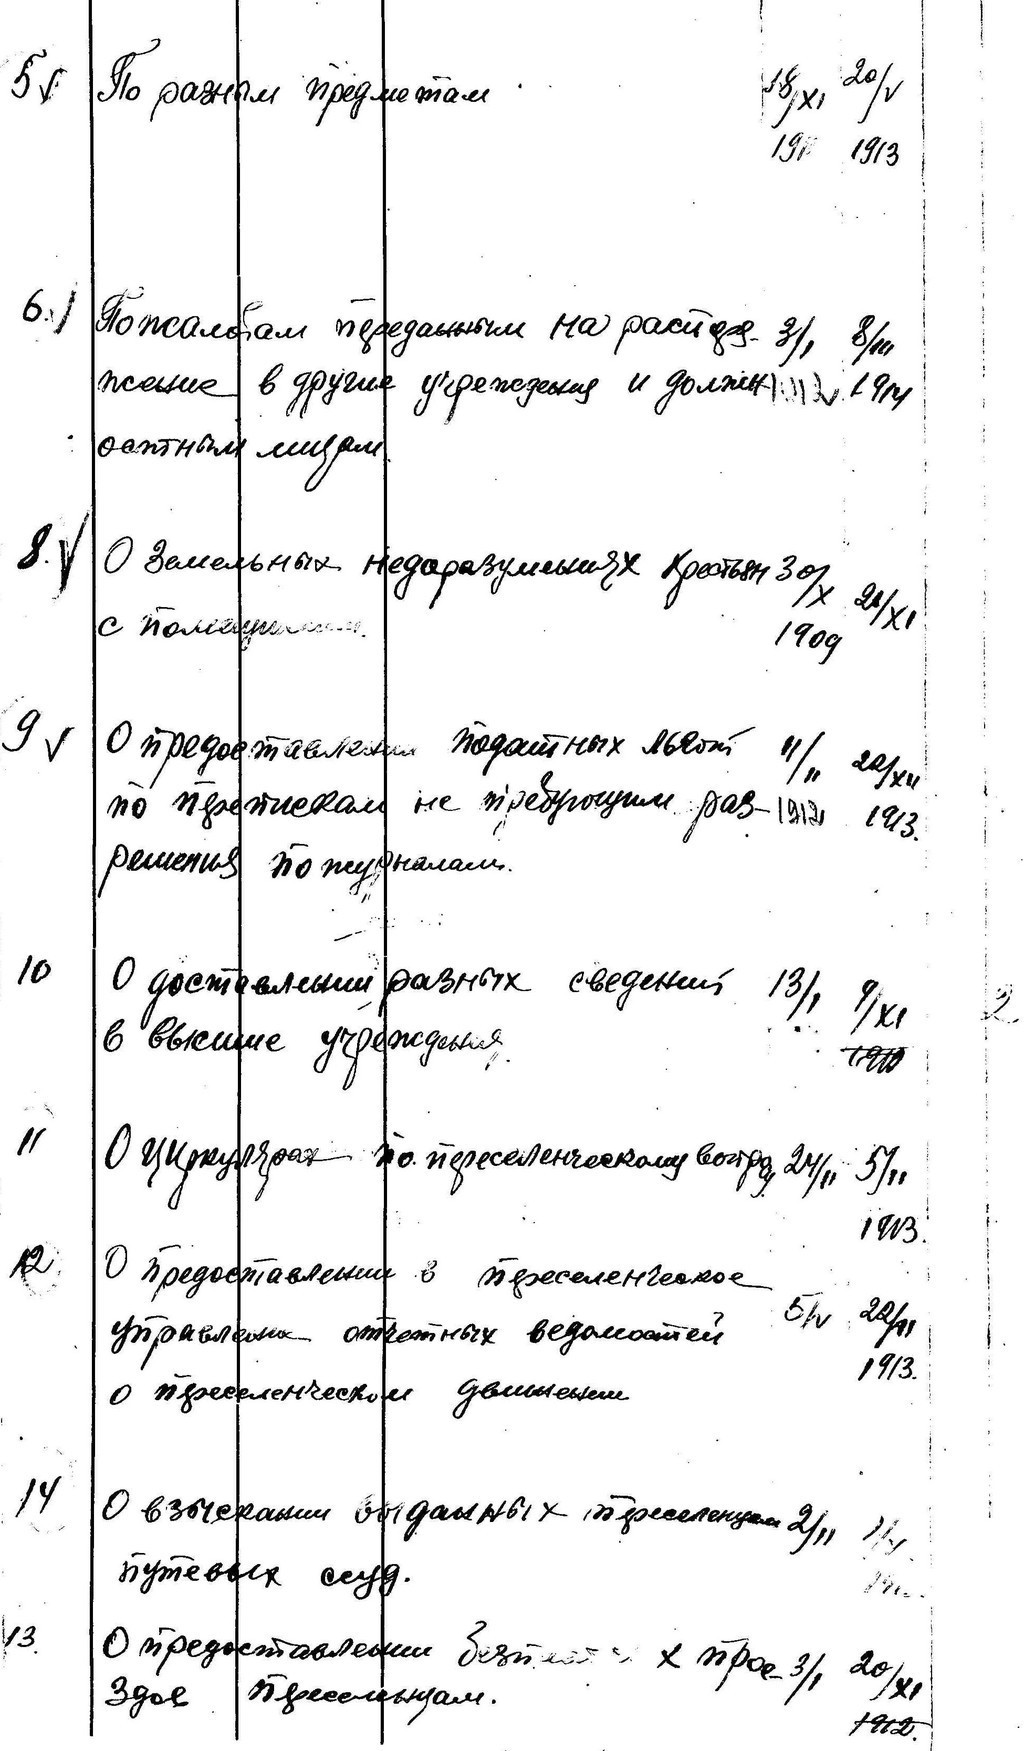 5 По разным предметам 18/XI 20/V
1913
6. По жалобам переданным на распоря- 3/I 8/III
жение в другие учреждения и должн 1914
остным лицам.
8. О Земельных недоразумениях крестьян 30/X 21/XI
с помещиками. 1909
9 О предоставлении податных льгот 11/II 22/XII
по перепискам не требующим раз- 1912 1913.
решения по журналам.
10 О доставлении разных сведений 13/I 9/XI
в высшие учреждения. 1910
11 О циркулярах по переселенческому вопросу 24/II 5/II
1913.
12 О предоставлении в переселенческое
управление отчетных ведомостей 5/IV
о переселенческом движении 1913.
14 О взыскании выданных переселенцам 2/II
путевых ссуд.
13. О предоставлении х прое- 3/I 20/XI
здов переселенцам. 1912.